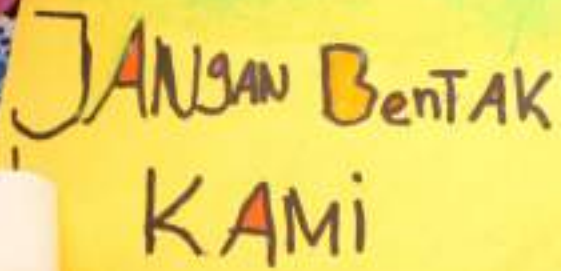 JANgAN BenTAK
KAMi